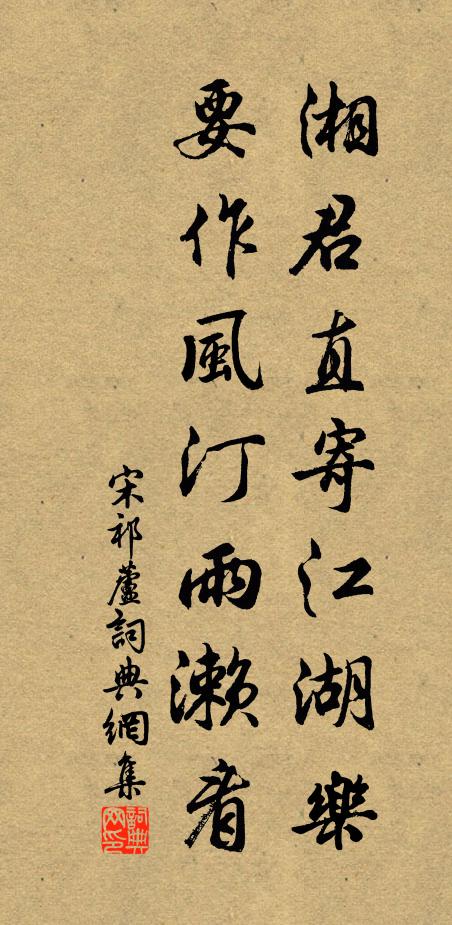 湘君直寄江湖樂
要作風汀雨瀨看
宋祁蘆詞典網集
詞典网印